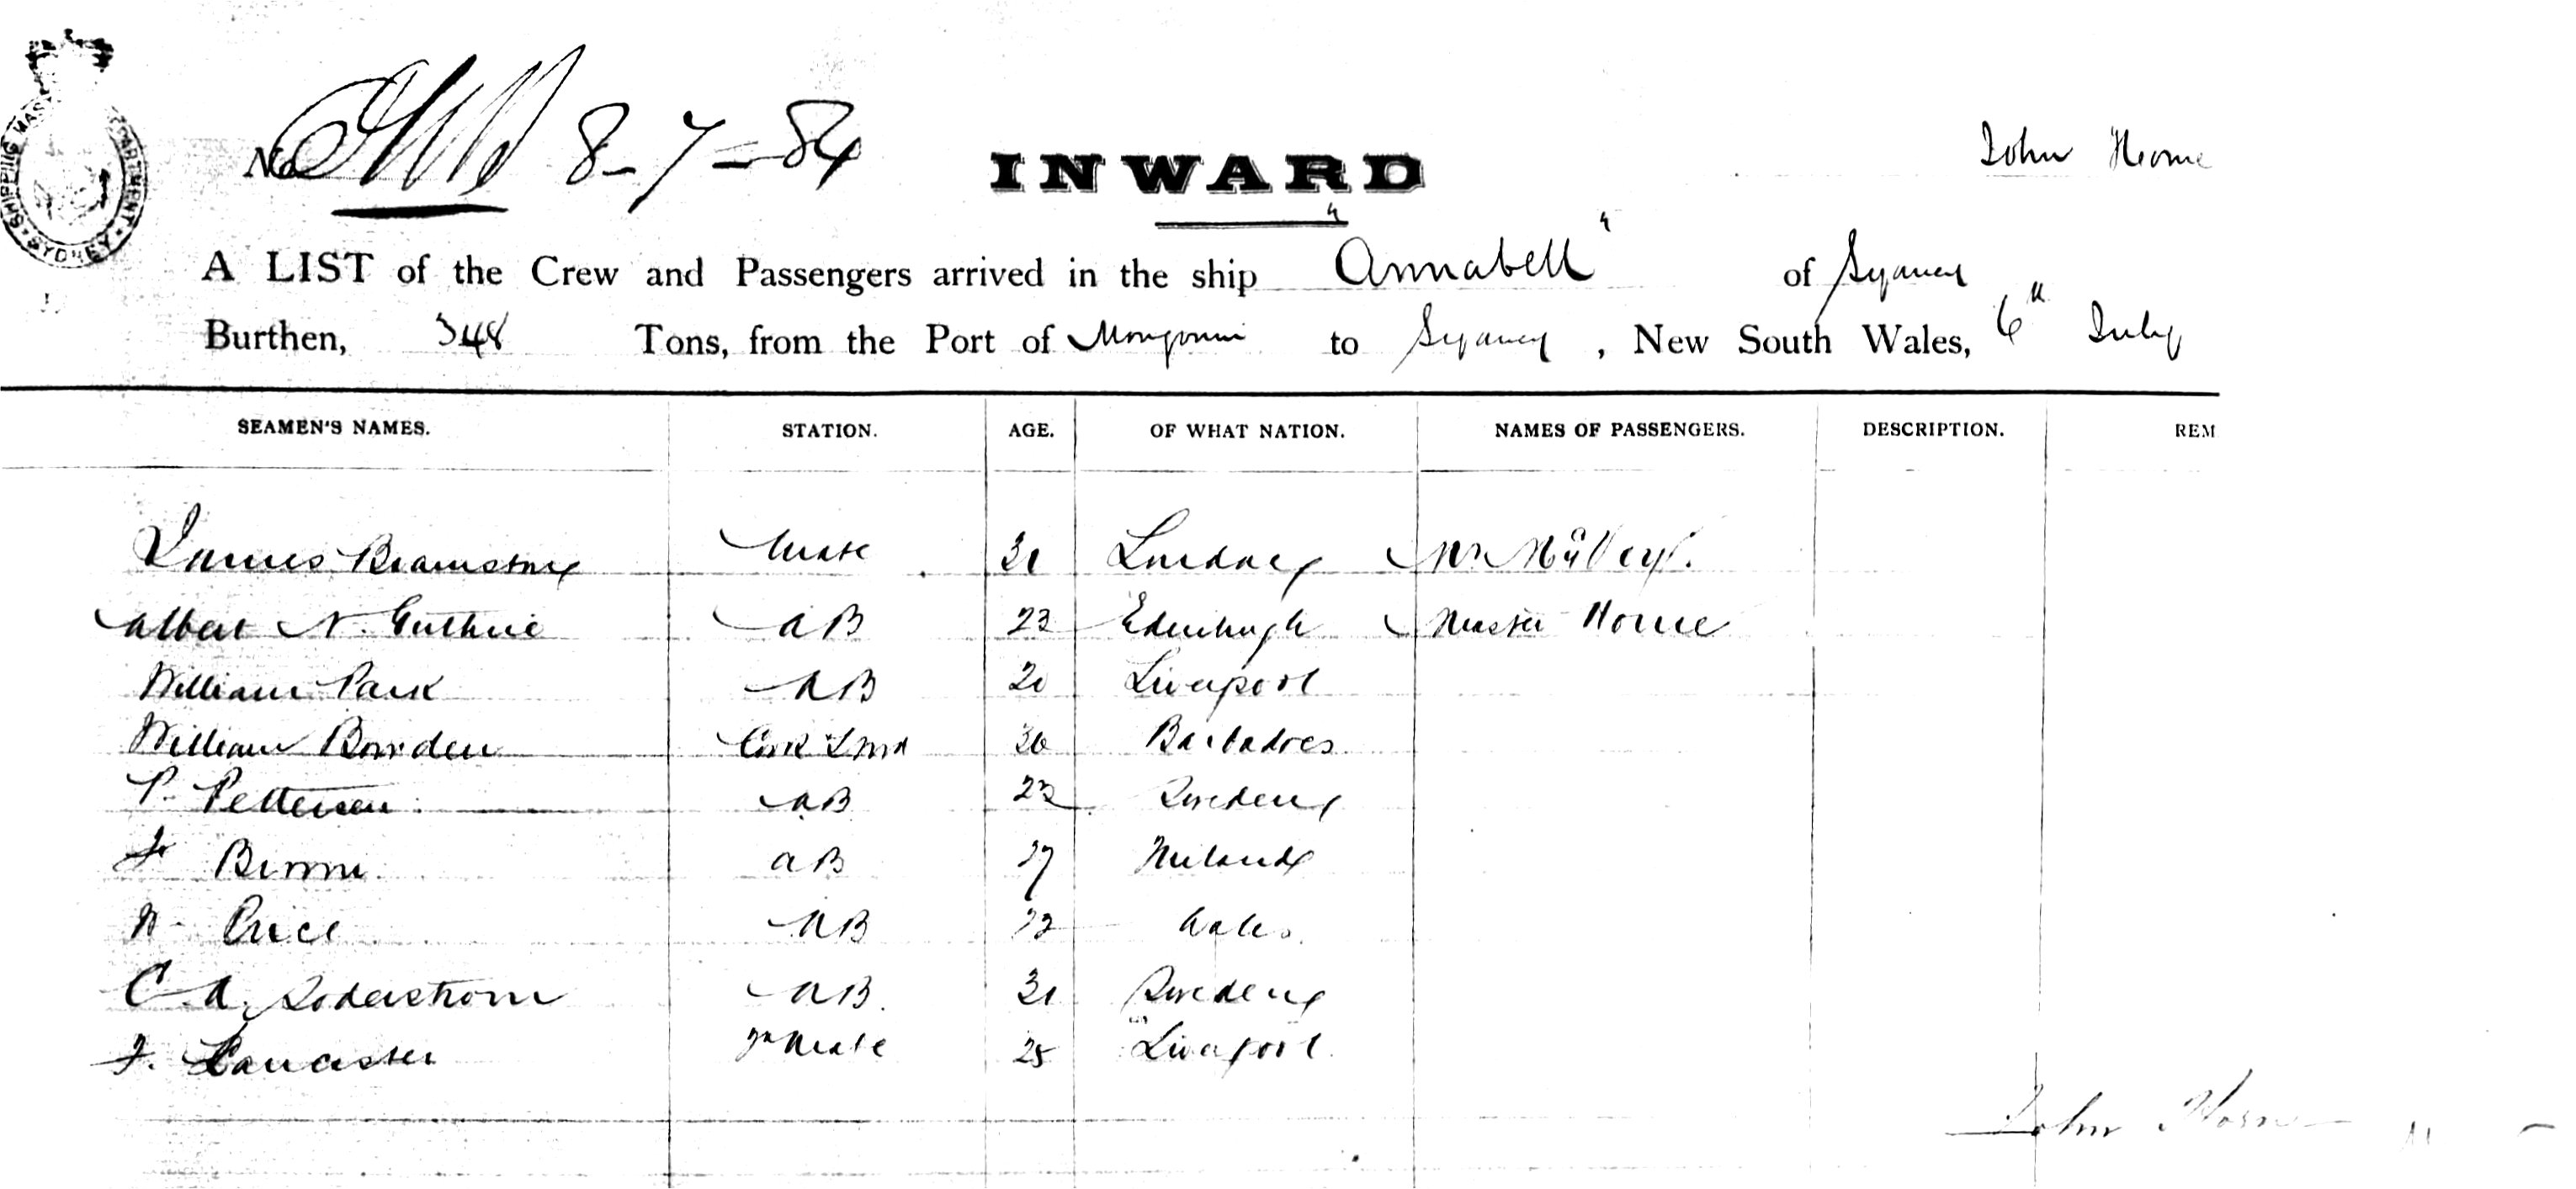 No 8-7-84
INWARD
John Home
A LIST of the Crew and Passengers arrived in the ship "Annabell" of Sydney
Burthen, 348 Tons, from the Port of Mongonui to Sydney, New South Wales, 6th July
SEAMEN'S NAMES. STATION. AGE. OF WHAT NATION. NAMES OF PASSENGERS. DESCRIPTION. REM
James Bramstone Mate 31 London Mr
Albert N. Guthrie AB 23 Edinburgh Master Home
William Park AB 20 Liverpool
William Bowden Cook & Smd 36 Barbadoes
P. Pettersen AB 22 Sweden
AB 27
W. Price AB 22 Wales
C. A. Soderstrom AB. 31 Sweden
F. Lancaster 2n Mate 25 Liverpool
John
SHIPPING MAS ARTMENT SYDNEY